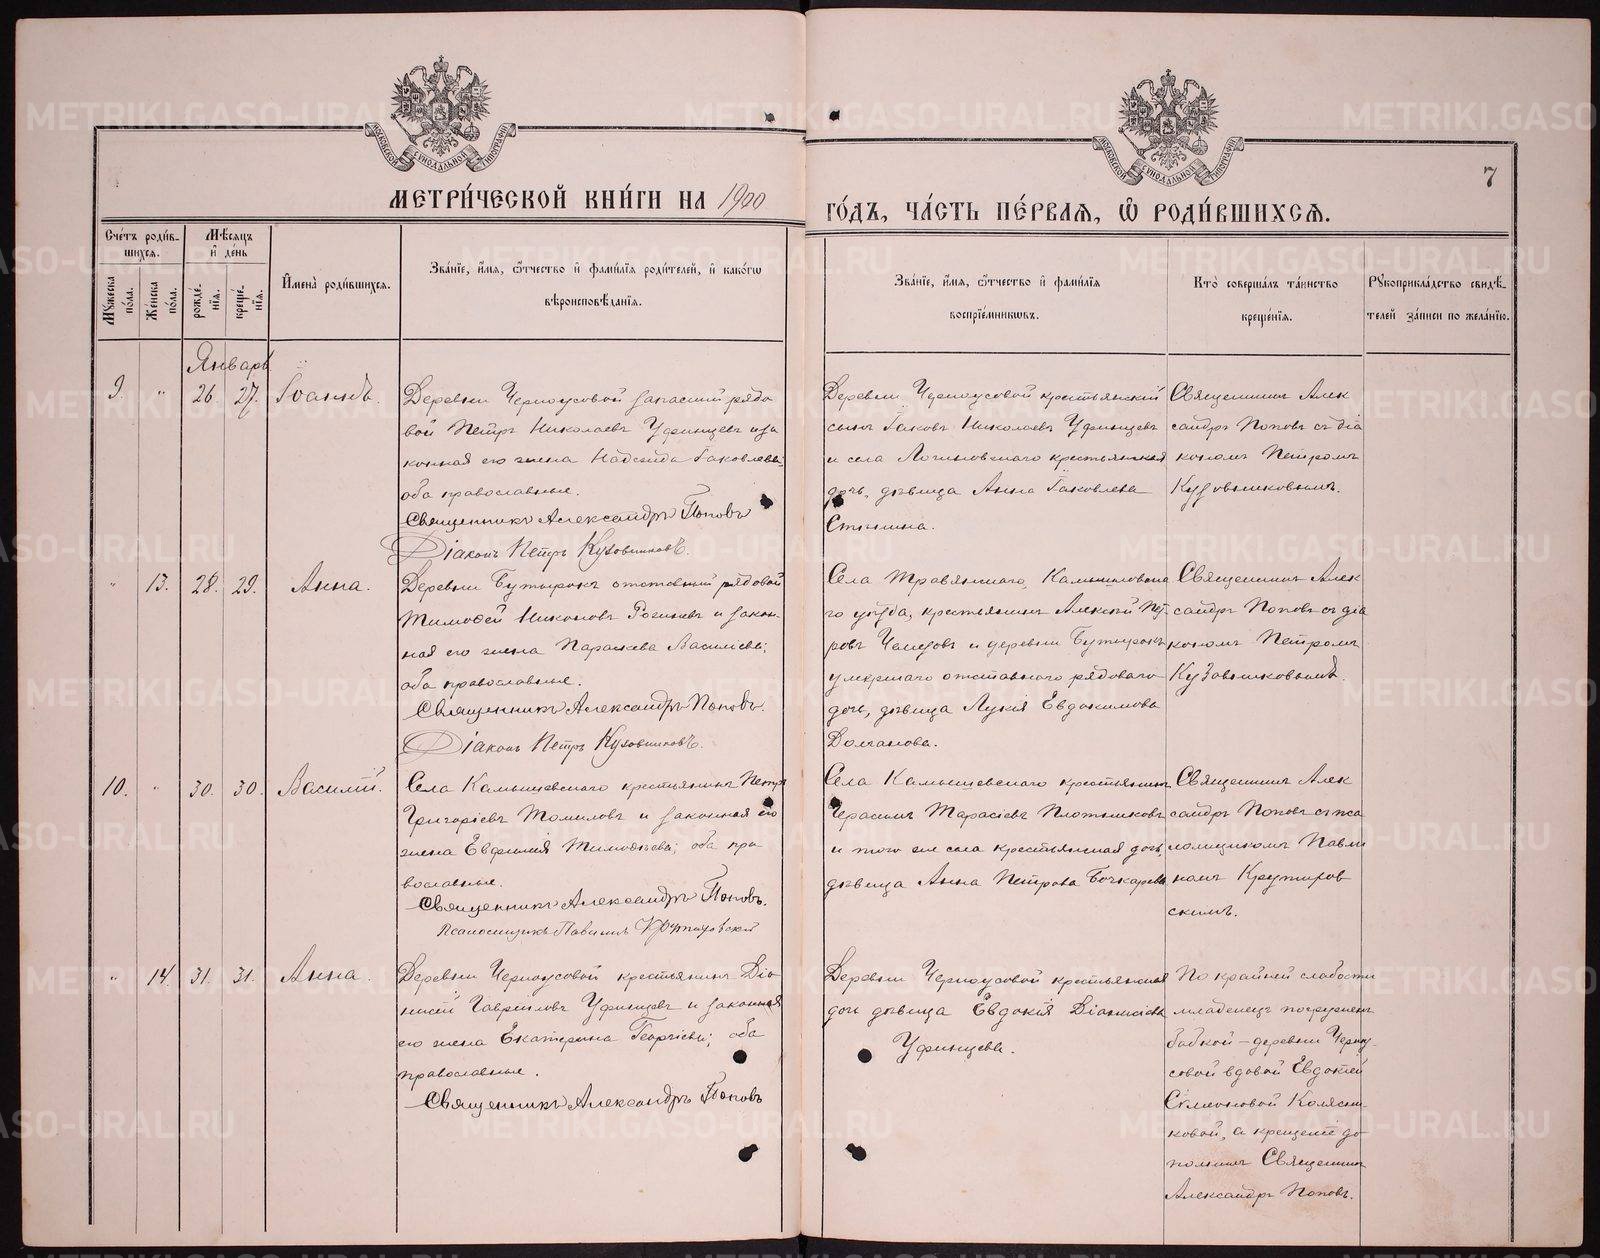 МЕТРИ́ЧЕСКОЙ КНИ́ГИ НА 1900
ГО́ДЪ, ЧА́СТЬ ПЕ́РВАЯ, Ѡ РОДИ́ВШИХСЯ.
7
МОСКОВСКОЙ СѴНОДАЛЬНОЙ ТИПОГРАФІИ
МОСКОВСКОЙ СѴНОДАЛЬНОЙ ТИПОГРАФІИ
Сче́тъ роди́в-
шихся.
Му́жеска пола.
Же́нска пола.
Мѣ́сяцъ
и де́нь
рожде-
нія.
креще-
нія.
Имена̀ роди́вшихся.
Зва́ніе, и́мя, ѻ́тчество и фами́лія роди́телей, и како́гѡ
вѣроисповѣ́данія.
Зва́ніе, и́мя, ѻ́тчество и фами́лія
воспріе́мникѡвъ.
Кто̀ соверша́лъ та́инство
креще́нія.
Рукоприкла́дство свидѣ́-
телей за́писи по жела́нію.
Январь
9. " 26. 27. Іоаннъ.
Деревни Черноусовой запасный рядо
вой Петръ Николаевъ Уфинцевъ и за
конная его жена Надежда Іаковлева;
оба православные.
Священникъ Александръ Поповъ
Діаконъ Петръ Кузовниковъ.
Деревни Черноусовой крестьянскій
сынъ Іаковъ Николаевъ Уфинцевъ
и села Логиновскаго крестьянская
дочь, дѣвица Анна Іаковлева
Священникъ Алек
сандръ Поповъ съ діа
кономъ Петромъ
Кузовниковымъ.
" 13. 28. 29. Анна.
Деревни Бутырокъ отставный рядовой
Тимоѳей Никоновъ и закон-
ная его жена Параскева Василіева;
оба православные.
Священникъ Александръ Поповъ.
Діаконъ Петръ Кузовниковъ.
Села Травянскаго, Камышловска
го уѣзда, крестьянинъ Алексѣй Пет
ровъ и деревни Бутырокъ
умершаго отставного рядового
дочь, дѣвица Лукія Евдокимова
Долганова.
Священникъ Алек
сандръ Поповъ съ діа
кономъ Петромъ
Кузовниковымъ.
10. " 30. 30. Василій.
Села Камышевскаго крестьянинъ Петръ
Григоріевъ Томиловъ и законная его
жена Евфимія Тимоѳеева; оба пра
вославные.
Священникъ Александръ Поповъ.
Псаломщикъ Павлинъ Крутиховскій
Села Камышевскаго крестьянинъ
Герасимъ Тарасіевъ Плотниковъ
и того же села крестьянская дочь,
дѣвица Анна Петрова Бочкарева
Священникъ Алек
сандръ Поповъ съ пса
ломщикомъ Павли
номъ Крутихов
скимъ.
" 14. 31. 31. Анна.
Деревни Черноусовой крестьянинъ Діо
нисій Гавріиловъ Уфинцевъ и законная
его жена Екатерина Георгіева; оба
православные.
Священникъ Александръ Поповъ
Деревни Черноусовой крестьянская
дочь дѣвица Евдокія Діонисіева
Уфинцева.
По крайней слабости
младенецъ погруженъ
бабкой – деревни Черно-
совой вдовой Евдокіей
Симеоновой Колясни-
ковой, а крещеніе до-
полнилъ Священникъ
Александръ Поповъ.
METRIKI.GASO-URAL.RU